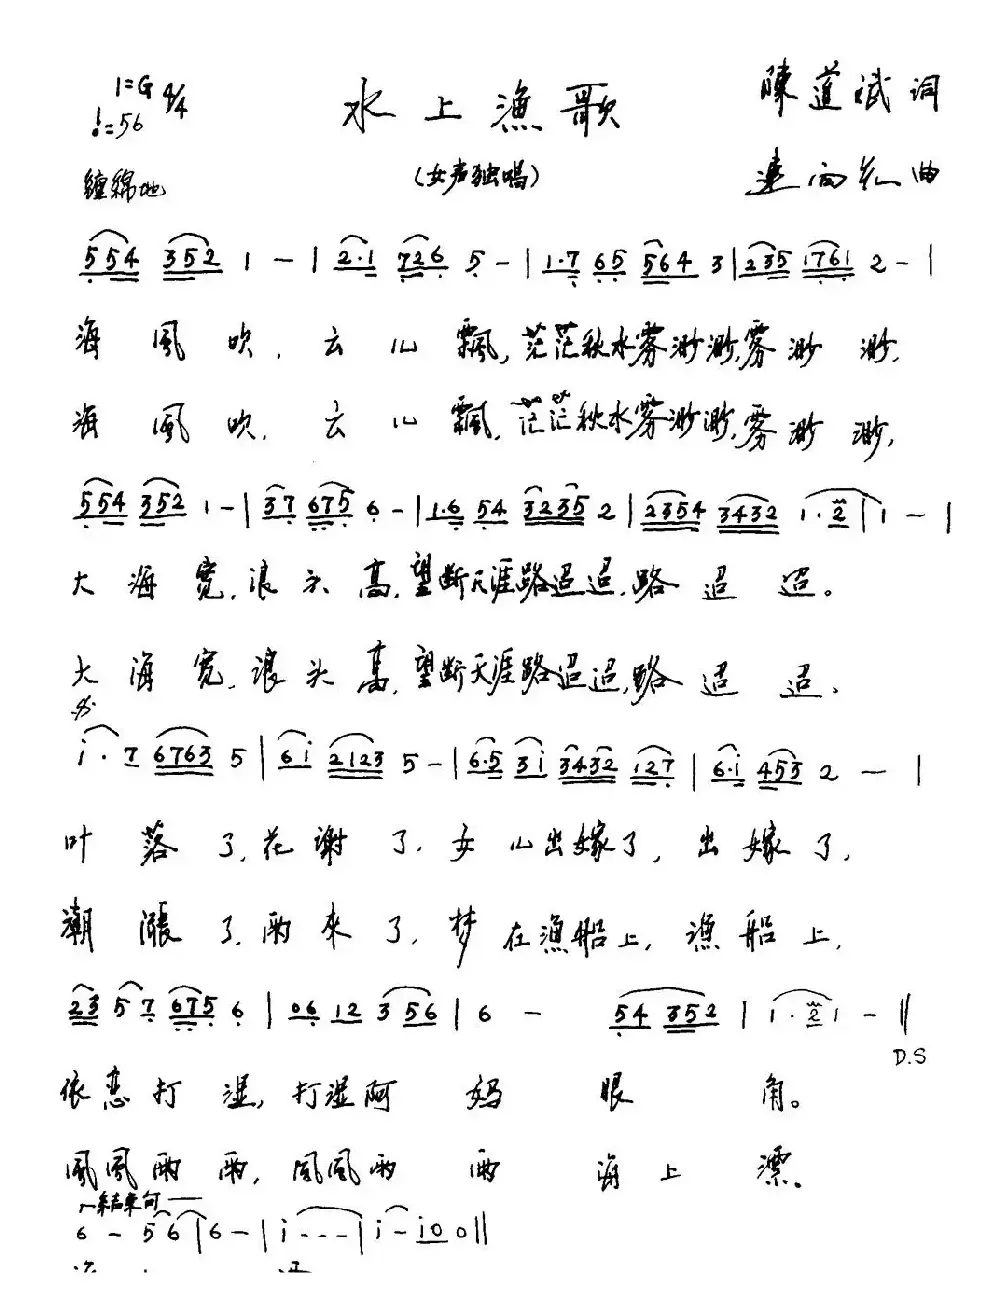 1=G 4/4
♩=56
水上漁歌
陳道斌 词
(女声独唱)
缠綿地
曲
5 5 4 3 5 2 1 — | 2·1 7 2 6 5 — | 1·7 6 5 5 6 4 3 | 2 3 5 1 7 6 1 2 — |
海風吹，云儿飄，茫茫秋水雾渺渺，雾渺渺，
海風吹，云儿飄，茫茫秋水雾渺渺，雾渺渺，
5 5 4 3 5 2 1 — | 3 7 6 7 5 6 — | 1·6 5 4 3 2 3 5 2 | 2 3 5 4 3 4 3 2 1·2 | 1 — |
大海寬，浪头高，望断天涯路迢迢，路迢迢。
大海宽，浪头高，望断天涯路迢迢，路迢迢，
i·7 6 7 6 3 5 | 6 i 2 1 2 3 5 — | 6·5 3 i 3 4 3 2 1 2 7 | 6·i 4 5 3 2 — |
叶落了，花謝了，女儿出嫁了，出嫁了，
潮漲了，雨來了，梦在漁船上，漁船上，
2 3 5 7 6 7 5 6 | 0 6 1 2 3 5 6 | 6 — 5 4 3 5 2 | 1·2 1 — ||
D.S
依恋打湿，打湿阿妈眼角。
風風雨雨，風風雨雨海上漂。
结束句
6 — 5 6 | 6 — | i - - - | i — i 0 0 ||